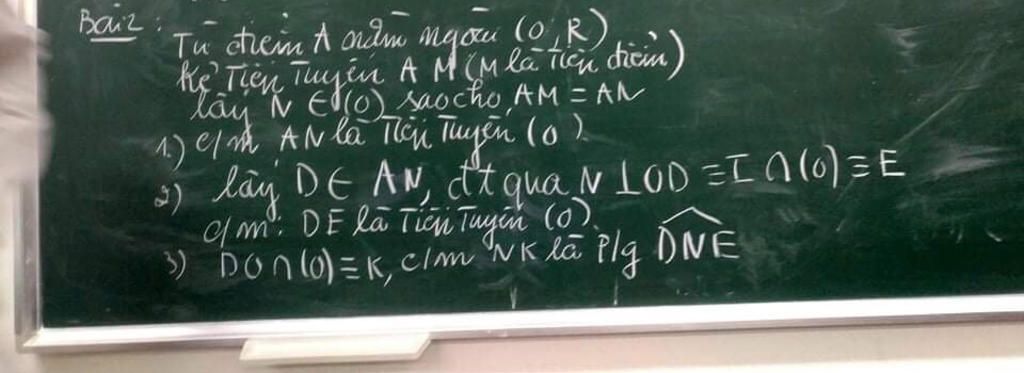 Bài 2: Từ điểm A nằm ngoài (O, R)
Kẻ tiếp tuyến AM (M là tiếp điểm)
lấy N ∈ (O) sao cho AM = AN
1) c/m AN là tiếp tuyến (O).
2) lấy D ∈ AN, đt qua N ⊥ OD ≡ I ∩ (O) ≡ E
c/m: DE là tiếp tuyến (O).
3) DO ∩ (O) ≡ K, c/m NK là p/g \widehat{DNE}